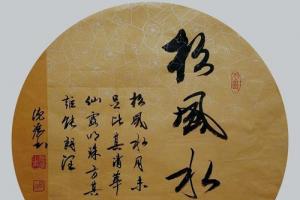 松風水
松風水月未
足比其清華
仙露明珠方其
能朗潤